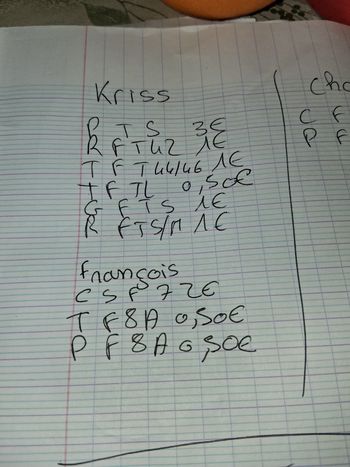 Kriss
P T S 3€
R F T42 1€
T F T44/46 1€
T F TL 0,50€
G F TS 1€
R F TS/M 1€
françois
C S F 7 2€
T F 8A 0,50€
P F 8A 0,50€
C F
P F